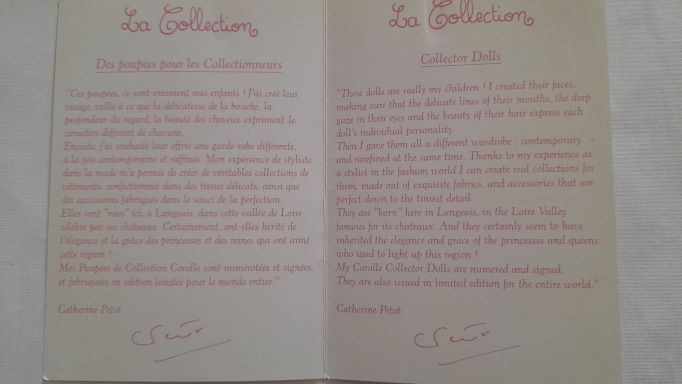 La Collection
Des poupées pour les Collectionneurs
"Ces poupées, ce sont vraiment mes enfants ! J'ai créé leur
visage, veillé à ce que la délicatesse de la bouche, la
profondeur du regard, la beauté des cheveux expriment le
caractère différent de chacune.
Ensuite, j'ai souhaité leur offrir une garde-robe différente,
à la fois contemporaine et raffinée. Mon expérience de styliste
dans la mode m'a permis de créer de véritables collections de
vêtements, confectionnés dans des tissus délicats, ainsi que
des accessoires fabriqués dans le souci de la perfection.
Elles sont "nées" ici, à Langeais, dans cette vallée de Loire
célèbre par ses châteaux. Certainement, ont-elles hérité de
l'élégance et la grâce des princesses et des reines qui ont aimé
cette région !
Mes Poupées de Collection Corolle sont numérotées et signées,
et fabriquées en édition limitée pour le monde entier."
Catherine Pétot
La Collection
Collector Dolls
"These dolls are really my children ! I created their faces,
making sure that the delicate lines of their mouths, the deep
gaze in their eyes and the beauty of their hair express each
doll's individual personality.
Then I gave them all a different wardrobe : contemporary
and rarefined at the same time. Thanks to my experience as
a stylist in the fashion world I can create real collections for
them, made out of exquisite fabrics, and accessories that are
perfect down to the tiniest detail.
They are "born" here in Langeais, in the Loire Valley
famous for its chateaux. And they certainly seem to have
inherited the elegance and grace of the princesses and queens
who used to light up this region !
My Corolle Collector Dolls are numered and signed.
They are also issued in limited edition for the entire world."
Catherine Pétot